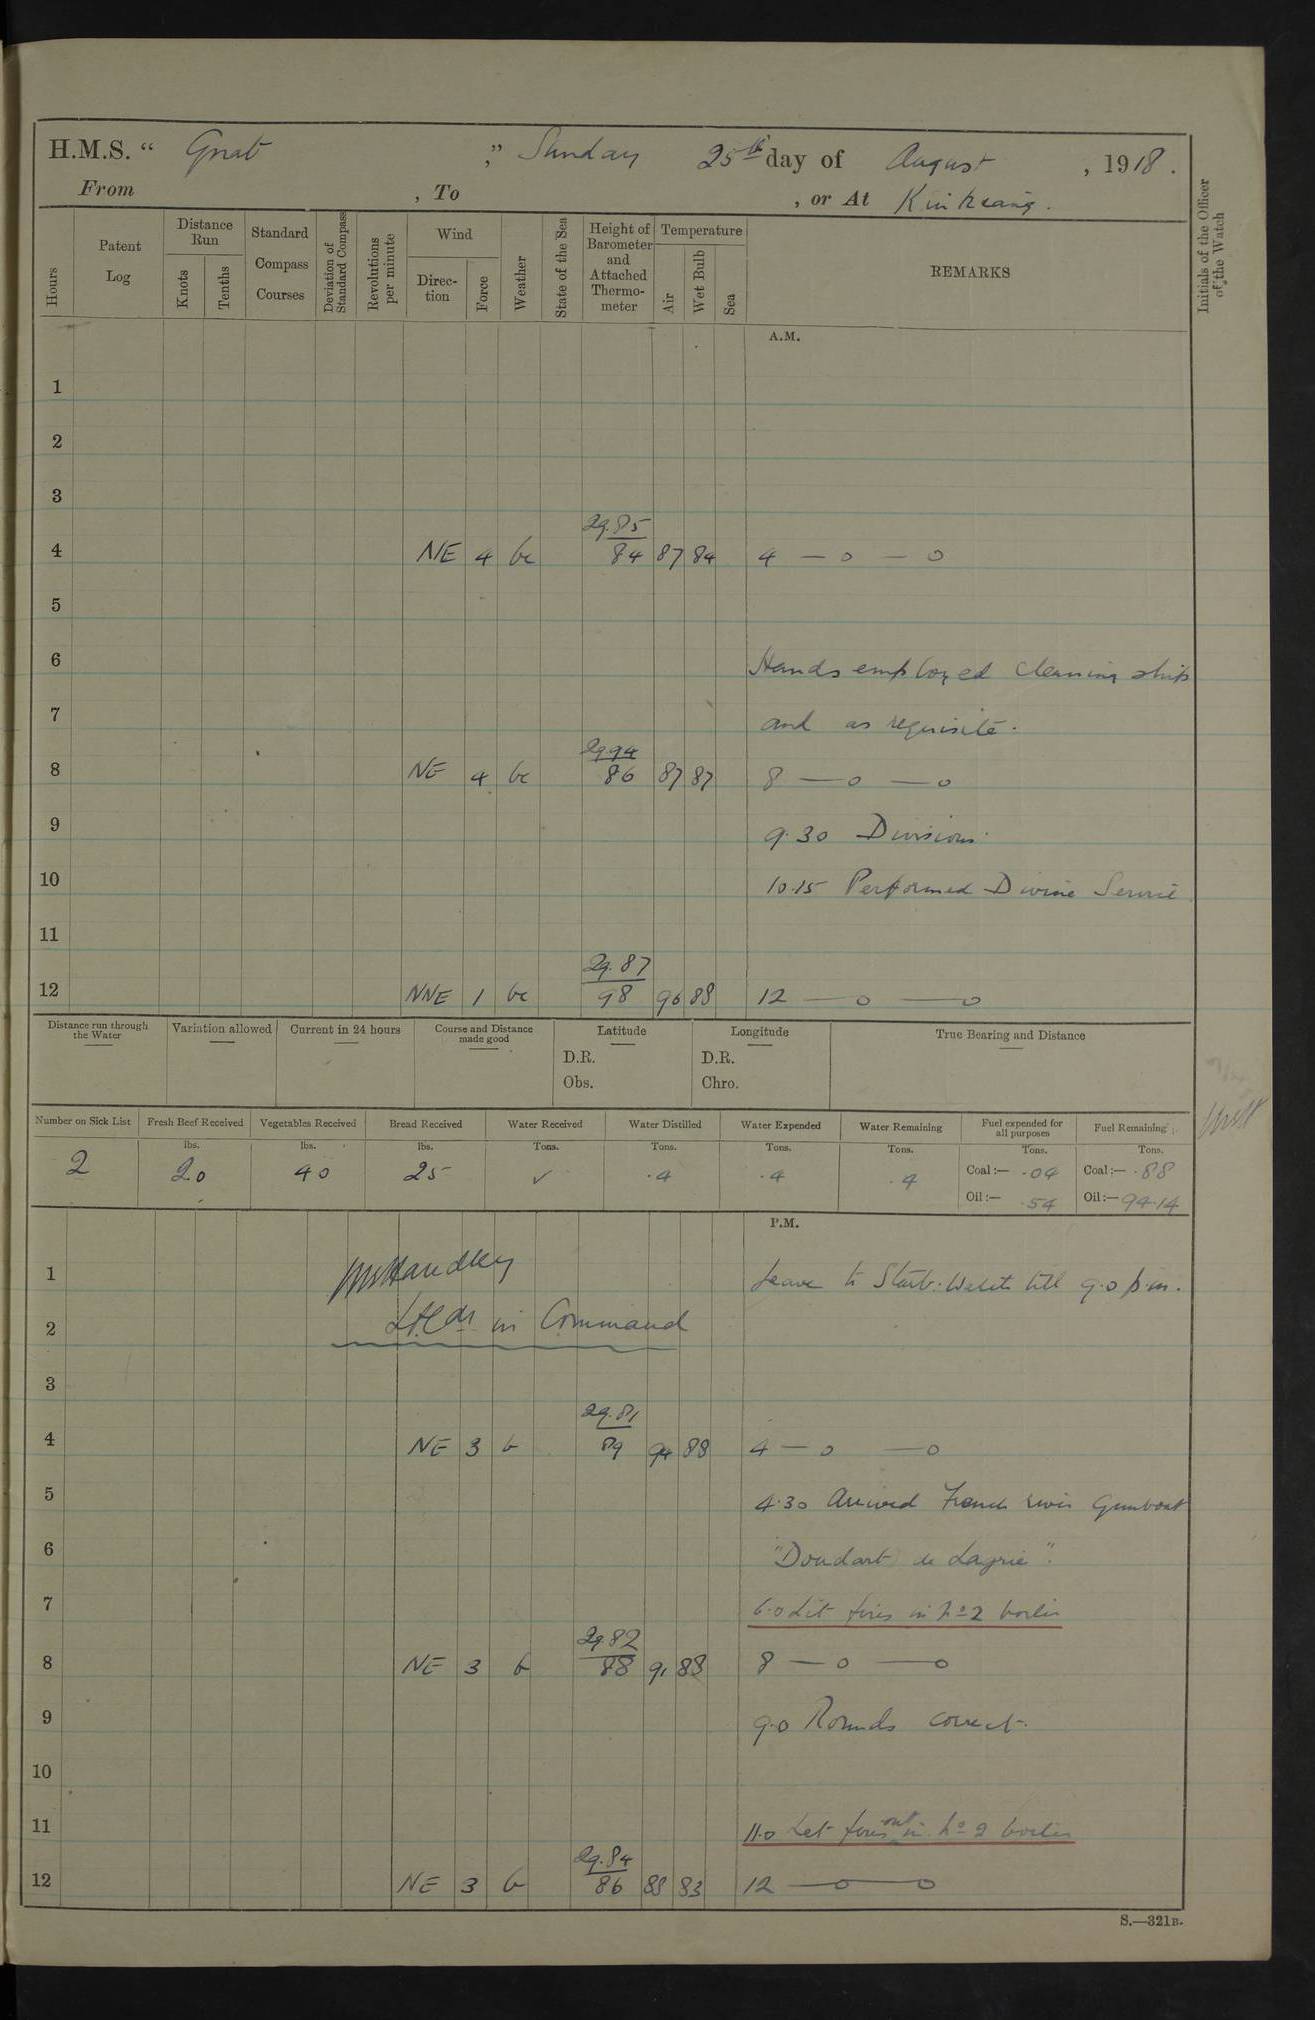 H.M.S. “ Gnat ,” Sunday 25th day of August , 1918.
From , To , or At Kiukiang.
Hours
Patent Log
Distance Run
Knots
Tenths
Standard Compass Courses
Deviation of Standard Compass
Revolutions per minute
Wind
Direction
Force
Weather
State of the Sea
Height of Barometer and Attached Thermometer
Temperature
Air
Wet Bulb
Sea
REMARKS
Initials of the Officer of the Watch
A.M.
1
2
3
29.85
4 NE 4 bc 84 87 84 4 — o — o
5
6 Hands employed cleaning ship
7 and as requisite.
29.94
8 NE 4 bc 86 87 87 8 — o — o
9 9.30 Divisions.
10 10.15 Performed Divine Service
11
29.87
12 NNE 1 bc 98 96 88 12 — o — o
Distance run through the Water
Variation allowed
Current in 24 hours
Course and Distance made good
Latitude
D.R.
Obs.
Longitude
D.R.
Chro.
True Bearing and Distance
Number on Sick List
2
Fresh Beef Received
lbs.
20
Vegetables Received
lbs.
40
Bread Received
lbs.
25
Water Received
Tons.
✓
Water Distilled
Tons.
.4
Water Expended
Tons.
.4
Water Remaining
Tons.
.4
Fuel expended for all purposes
Tons.
Coal :— .04
Oil :— .54
Fuel Remaining
Tons.
Coal :— .88
Oil :— 94.14
P.M.
1 Handley Leave to Starb. Watch till 9.0 p.m.
2 Lt Cdr in Command
3
29.81
4 NE 3 b 89 94 88 4 — o — o
5 4.30 Arrived French river Gunboat
6 "Doudart de Lagrée".
7 6.0 Lit fires in No 2 boiler
29.82
8 NE 3 b 88 91 88 8 — o — o
9 9.0 Rounds correct.
10
11 11.0 Let fires out in No 2 boiler
29.84
12 NE 3 b 86 88 83 12 — o — o
S.—321B.